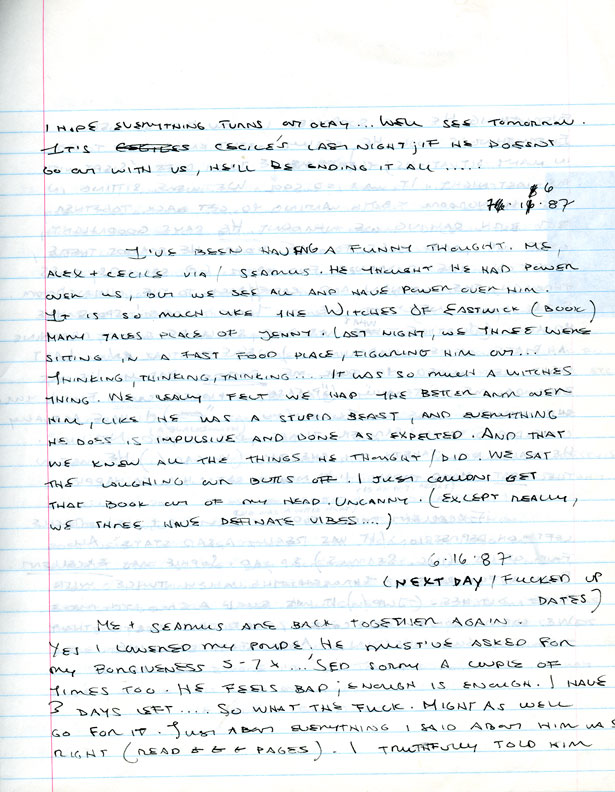 I HOPE EVERYTHING TURNS OUT OKAY... WELL SEE TOMORROW.
IT'S CECILE'S LAST NIGHT; IF HE DOESNT
GO OUT WITH US, HE'LL BE ENDING IT ALL.....
6
16.87
I'VE BEEN HAVING A FUNNY THOUGHT. ME,
ALEX + CECILE VIA/ SEAMUS. HE THOUGHT HE HAD POWER
OVER US, BUT WE SEE ALL AND HAVE POWER OVER HIM.
IT IS SO MUCH LIKE THE WITCHES OF EASTWICK (BOOK)
MARY TAKES PLACE OF JENNY. LAST NIGHT, WE THREE WERE
SITTING IN A FAST FOOD PLACE, FIGURING HIM OUT...
THINKING, THINKING, THINKING.... IT WAS SO MUCH A WITCHES
THING. WE REALLY FELT WE HAD THE BETTER ARM OVER
HIM, LIKE HE WAS A STUPID BEAST, AND EVERYTHING
HE DOES IS IMPULSIVE AND DONE AS EXPECTED. AND THAT
WE KNEW ALL THE THINGS HE THOUGHT/DID. WE SAT
THE LAUGHING OUR BUTTS OFF. I JUST COULDNT GET
THAT BOOK OUT OF MY HEAD. UNCANNY. (EXCEPT REALLY,
WE THREE HAVE DEFINATE VIBES....)
6.16.87
(NEXT DAY / FUCKED UP
DATES)
ME + SEAMUS ARE BACK TOGETHER AGAIN.
YES I LOWERED MY PRIDE, HE MUST'VE ASKED FOR
MY FORGIVENESS 5-7 X... 'SED SORRY A COUPLE OF
TIMES TOO. HE FEELS BAD; ENOUGH IS ENOUGH. I HAVE
3 DAYS LEFT.... SO WHAT THE FUCK. MIGHT AS WELL
GO FOR IT. JUST ABOUT EVERYTHING I SAID ABOUT HIM WAS
RIGHT (READ ← ← ← PAGES). I TRUTHFULLY TOLD HIM